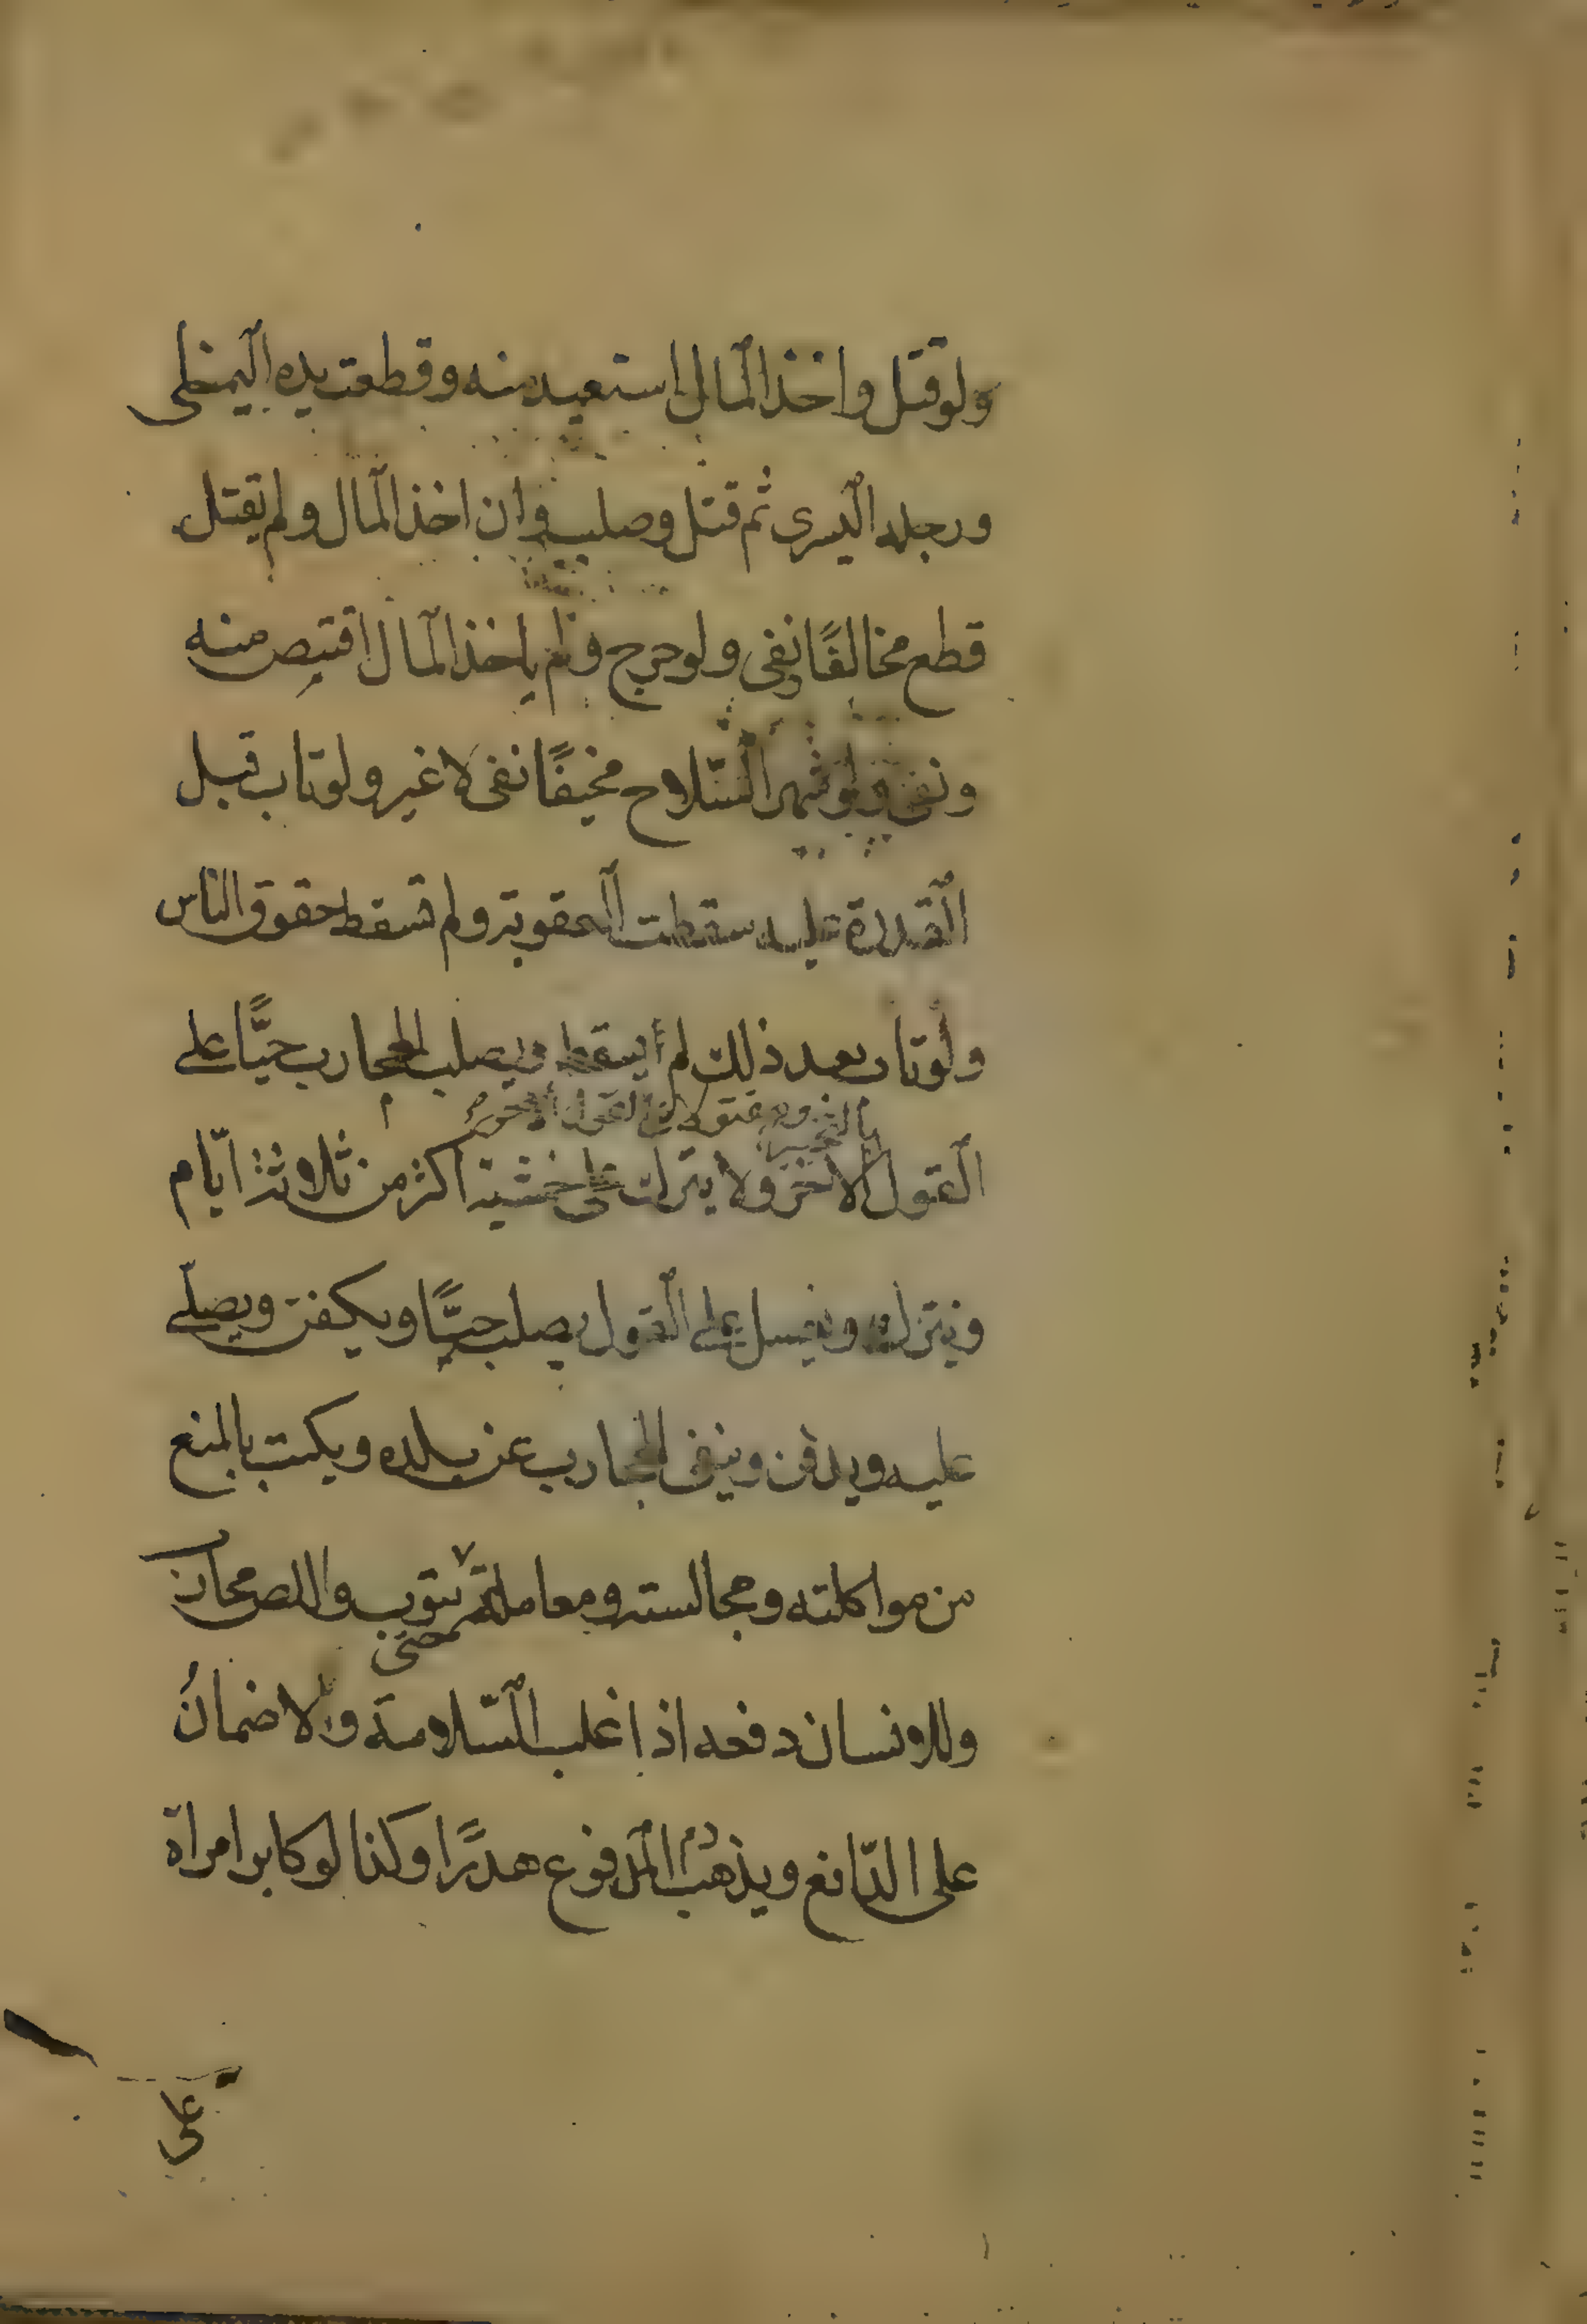 ولو قتل واخذ المال استعيد منه وقطعت يده اليمنى
ورجله اليسرى ثم قتل وصلب وان اخذ المال ولم يقتل
قطع مخالفًا ونفى ولو جرح ولم ياخذ المال اقتص منه
ونفى ولو شهر السّلاح مخيفًا نفى لا غير ولو تاب قبل
القدرة عليه سقطت العقوبة ولم تسقط حقوق الناس
ولو تاب بعد ذلك لم يسقط ويصلب المحارب حيًّا على
القول بالتخيير ومقتولا على القول
الاخر ولا يترك على خشبة اكثر من ثلاثة ايّام
وينزل ويغسل على القول يصلب حيًّا ويكفن ويصلّى
عليه ويدفن وينفى المحارب عن بلده ويكتب بالمنع
من مواكلته ومجالسته ومعاملته حتى يتوب واللص محارب
وللانسان دفعه اذا غلب السّلامة ولا ضمانُ
على الدّافع ويذهب دم المدفوع هدرًا وكذا لو كابر امراة
على